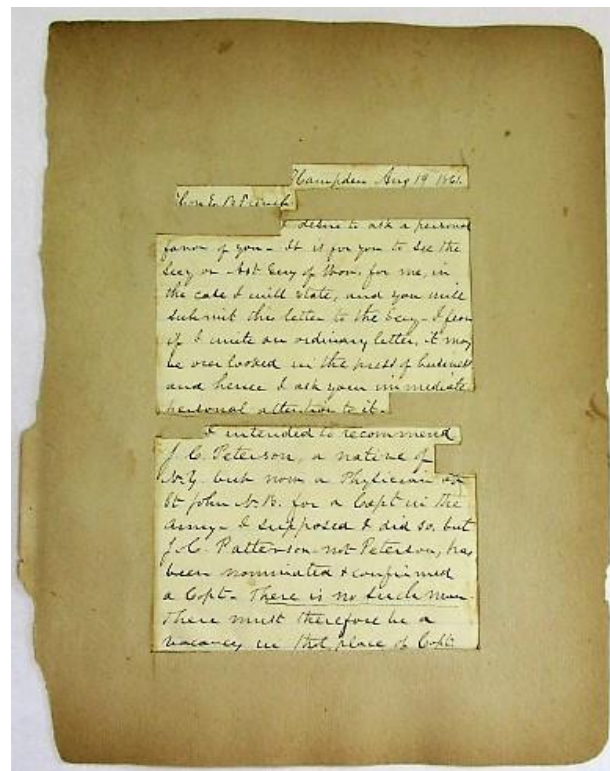 Hampden Aug 19 1861.
Hon E. B. French
I desire to ask a personal
favor of you - It is for you to see the
Secy or Ast Secy of War, for me, in
the case I will state, and you will
submit this letter to the Secy - I fear
if I write an ordinary letter, it may
be over looked in the press of business
and hence I ask your immediate
personal attention to it -
I intended to recommend
J. C. Peterson, a native of
N.Y. but now a Physician at
St John N.B. for a Capt in the
army - I supposed I did so, but
J. C. Patterson - not Peterson, has
been nominated & confirmed
a Capt - There is no such man -
There must therefore be a
vacancy in that place of Capt.